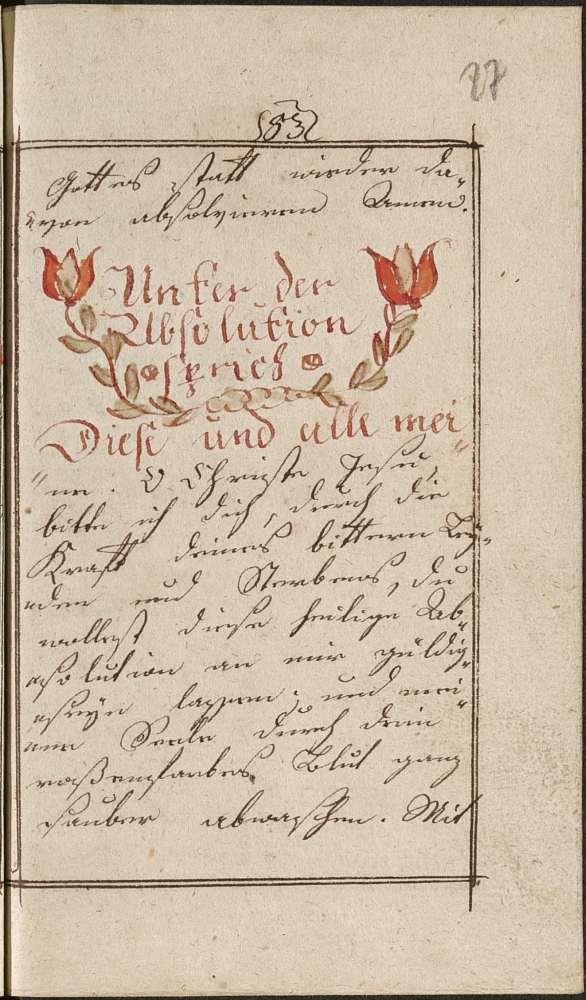 27
53
Gottes statt wieder da„
„von absolvieren Amen.
Unter der
Absolution
sprich
Diese und alle mei„
„ne. O Christe Jesu,
bitte ich dich, durch die
Kraft deines bittern Ley„
„den und Sterbens, du
wollest diese heilige Ab„
„solution an mir güldig
„seyn lassen: und mei„
„ne Seele durch dein
rosenfarbes Blut ganz
sauber abwaschen. Mit